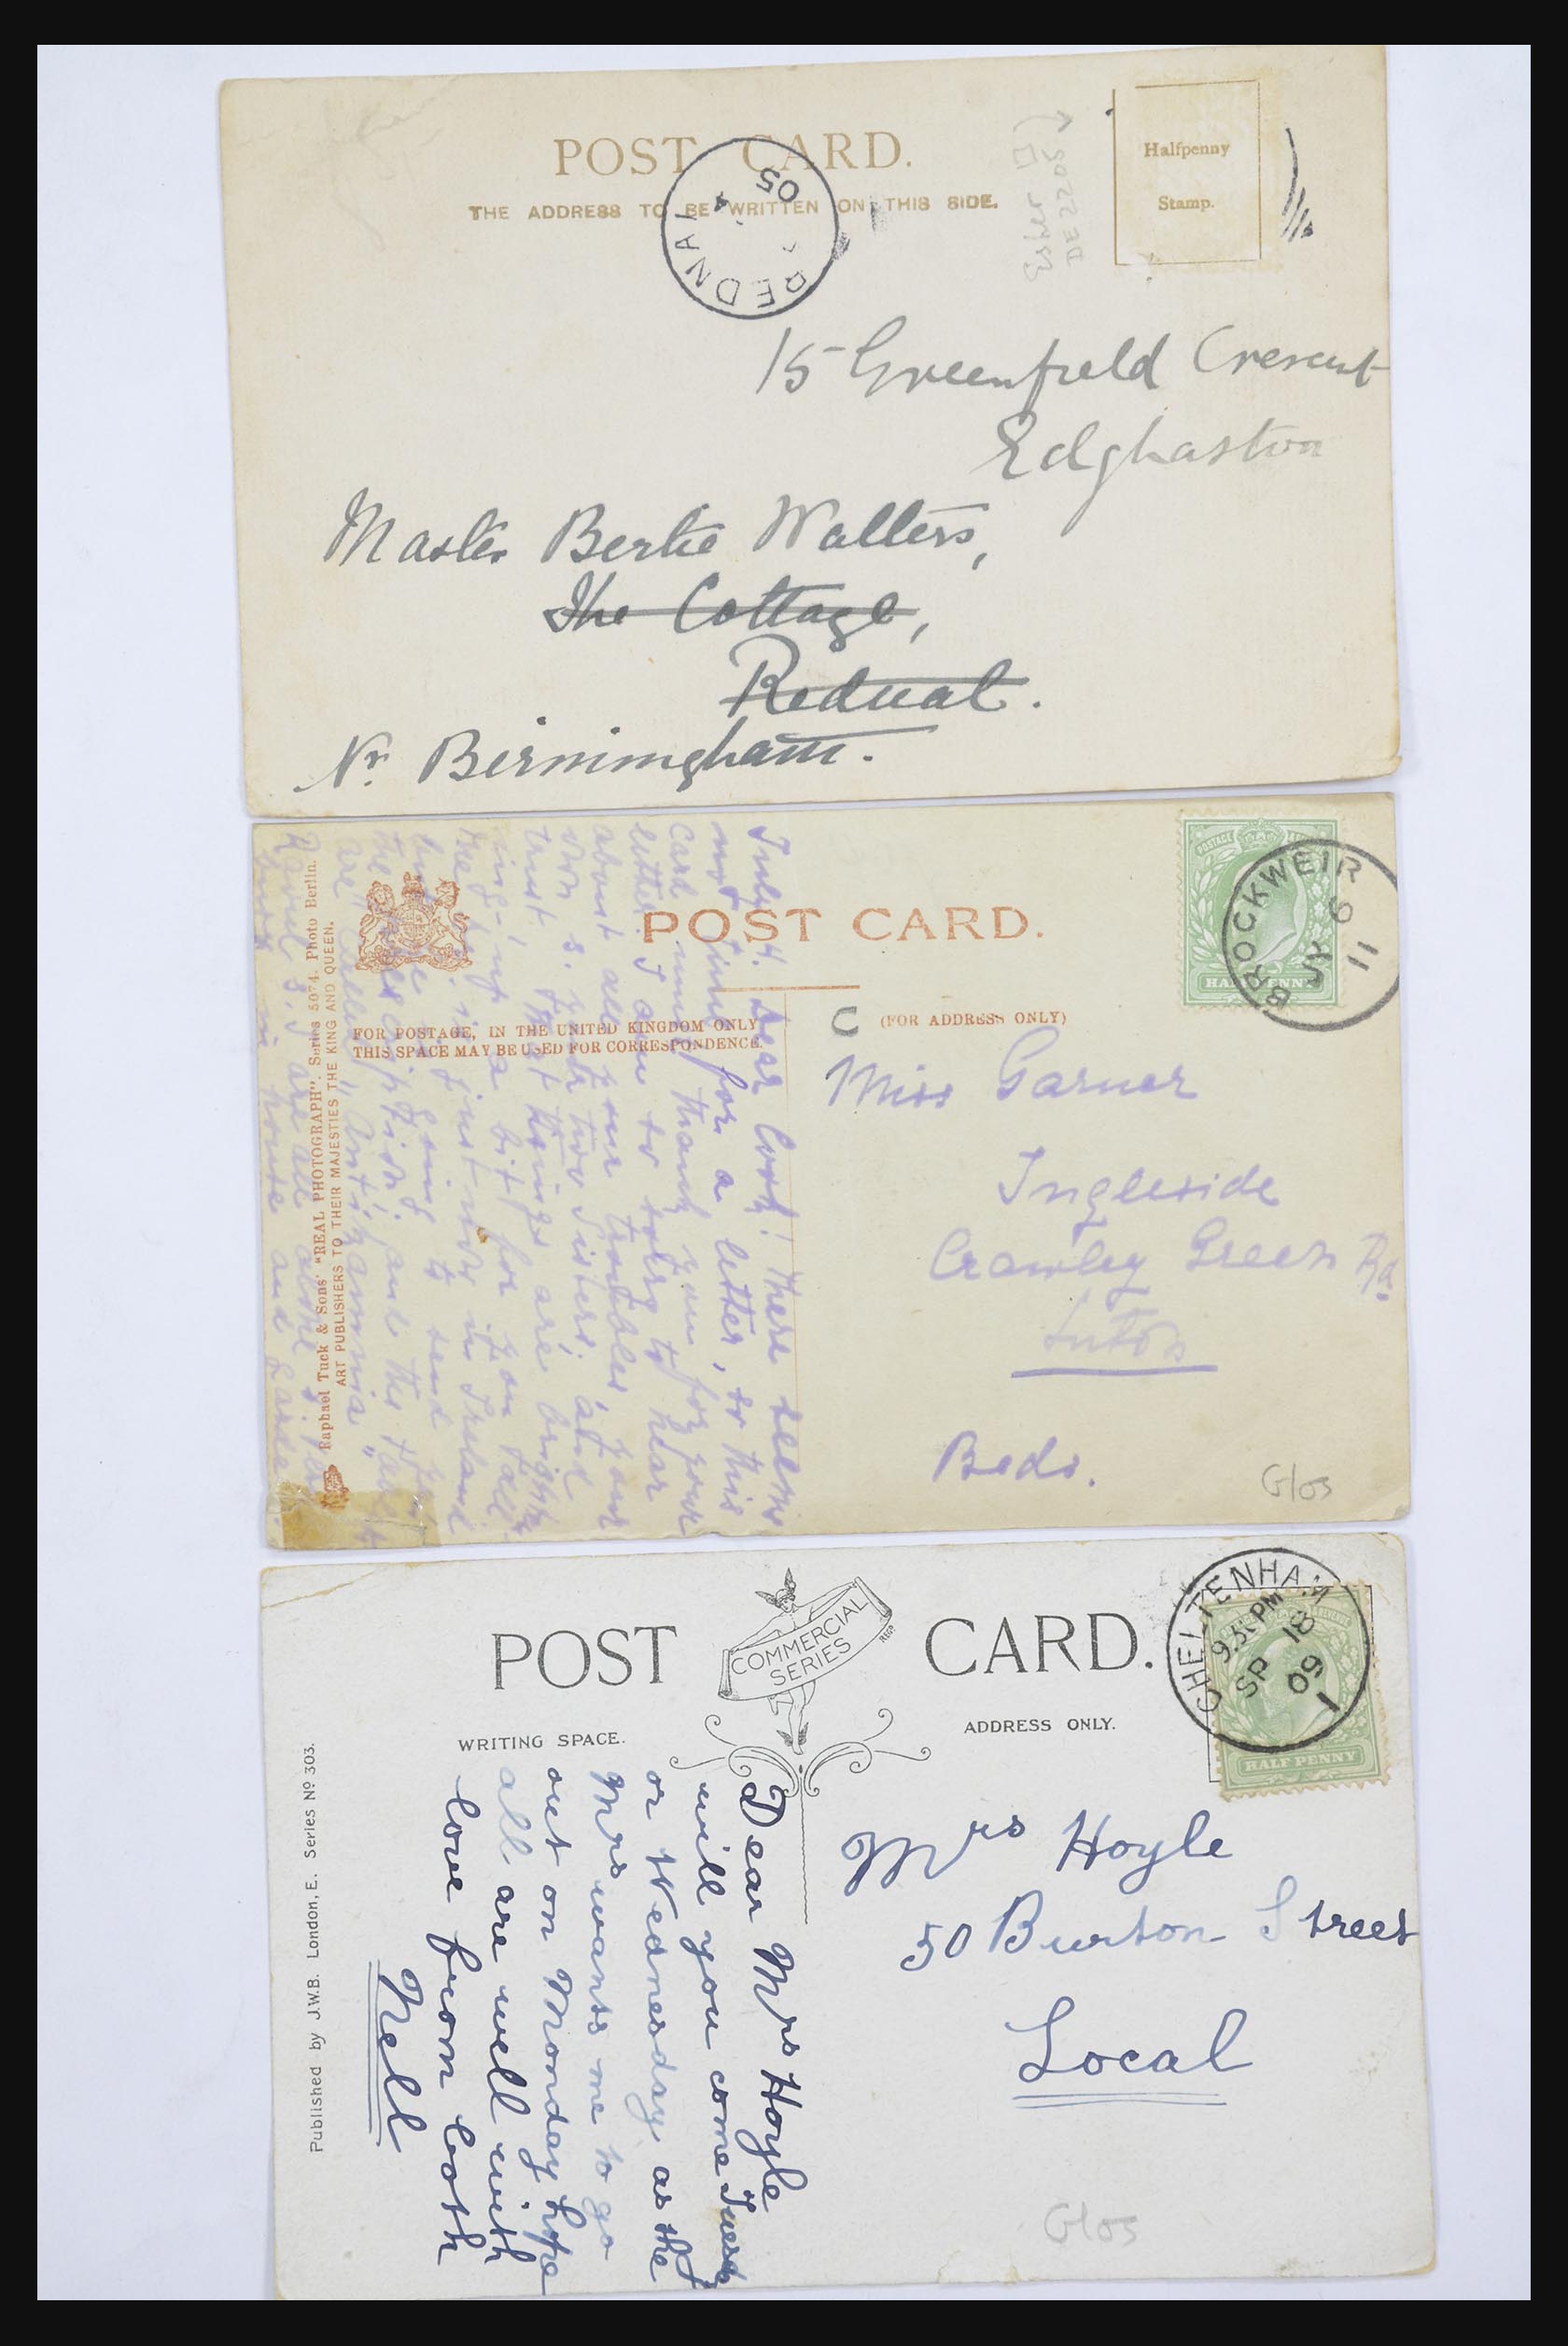 POST CARD.
THE ADDRESS TO BE WRITTEN ON THIS SIDE.
Halfpenny
Stamp.
REDNAL
05
15 Greenfield Crescent
Edgbaston
Master Bertie Walters,
The Cottage,
Rednal.
Nr Birmingham.
POST CARD.
(FOR ADDRESS ONLY)
FOR POSTAGE, IN THE UNITED KINGDOM ONLY
THIS SPACE MAY BE USED FOR CORRESPONDENCE.
Raphael Tuck & Sons' "REAL PHOTOGRAPH". Series 5074. Photo Berlin.
ART PUBLISHERS TO THEIR MAJESTIES THE KING AND QUEEN.
POSTAGE
HALF PENNY
BROCKWEIR
JY 6
11
C
Miss Garner
Ingleside
Crawley Green Rd.
Luton
Beds.
Glos
July 4. Dear Cook! There seems
not time for a letter, so this
card must thank you for your
letter. I am so sorry to hear
about all your troubles, your
own & your two sisters, and
trust that things are bright-
ing-up a bit for you all.
POST CARD.
COMMERCIAL
SERIES
REGD
WRITING SPACE.
ADDRESS ONLY.
CHELTENHAM
9.30 PM
SP 18
09
1
HALF PENNY
Published by J.W.B. London, E. Series No 303.
Mrs Hoyle
50 Burton Street
Local
Glos
Dear Mrs Hoyle
will you come Tuesday
or Wednesday as the
Mrs wants me to go
out on Monday hope
all are well with
love from both
Nell